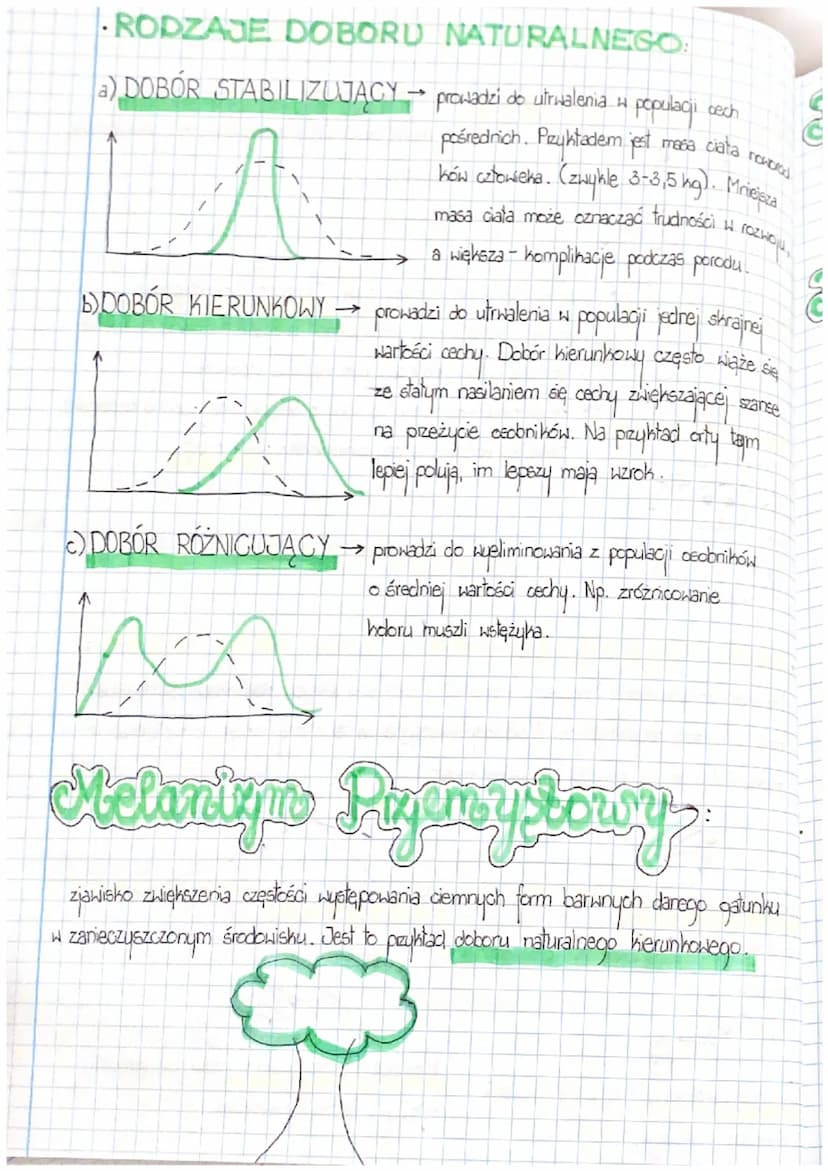 · RODZAJE DOBORU NATURALNEGO:
a) DOBÓR STABILIZUJĄCY → prowadzi do utrwalenia w populacji cech
pośrednich. Przykładem jest masa ciała noworod
ków człowieka. (zwykle 3-3,5 kg). Mniejsza
masa ciała może oznaczać trudności w rozwoju,
a większa - komplikacje podczas porodu.
b) DOBÓR KIERUNKOWY → prowadzi do utrwalenia w populacji jednej skrajnej
wartości cechy. Dobór kierunkowy często wiąże się
ze stałym nasilaniem się cechy zwiększającej szanse
na przeżycie osobników. Na przykład orły tym
lepiej polują, im lepszy mają wzrok.
c) DOBÓR RÓŻNICUJĄCY → prowadzi do wyeliminowania z populacji osobników
o średniej wartości cechy. Np. zróżnicowanie
koloru muszli wstężyka.
Melanizm Przemysłowy:
zjawisko zwiększenia częstości występowania ciemnych form barwnych danego gatunku
w zanieczyszczonym środowisku. Jest to przykład doboru naturalnego kierunkowego.